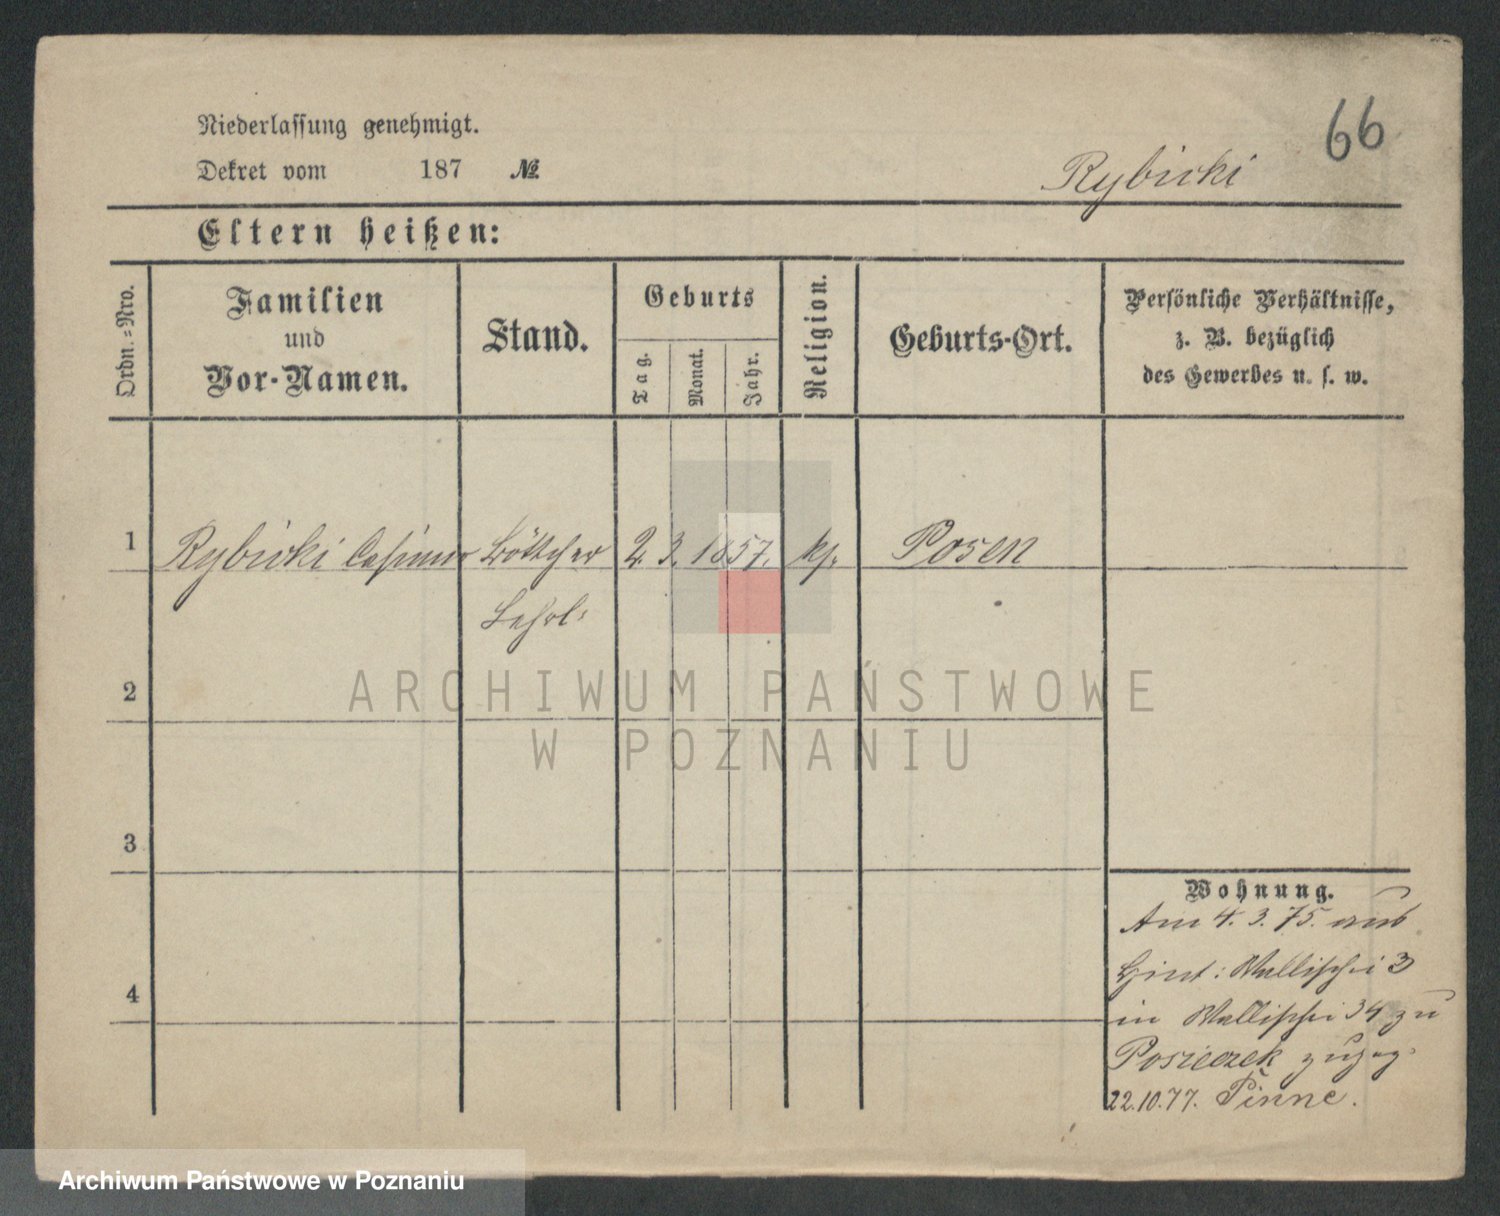 66
Niederlassung genehmigt.
Dekret vom 187 №
Rybicki
Eltern heißen:
Ordn.=Nro.
Familien
und
Vor-Namen.
Stand.
Geburts
Tag.
Monat.
Jahr.
Religion.
Geburts-Ort.
Persönliche Verhältnisse,
z. B. bezüglich
des Gewerbes u. s. w.
1 Rybicki Casimir Böttcher 2. 3. 1857. kf. Posen
Lehrl:
2
3
4
Wohnung.
Am 4. 3. 75. aus
Hint: Wallischei 3
in Wallischei 34 zu
Posieczek zugez.
22.10.77. Pinne.
ARCHIWUM PAŃSTWOWE
W POZNANIU
Archiwum Państwowe w Poznaniu